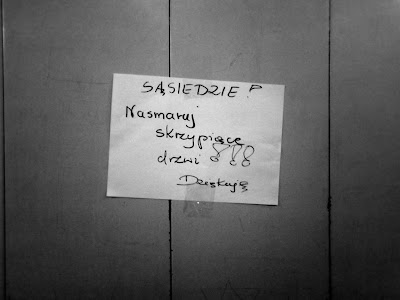 SĄSIEDZIE!
Nasmaruj
skrzypiące
drzwi !!!
Dziękuję